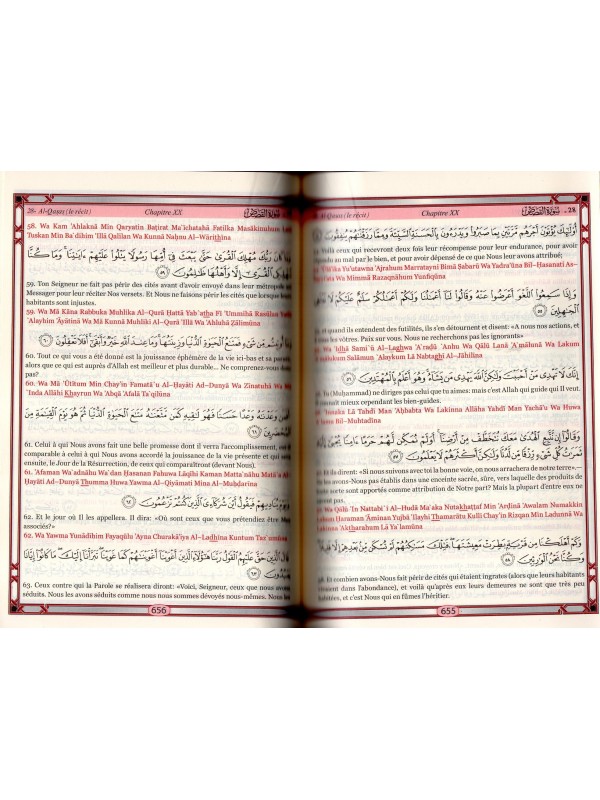 Al-Qaṣaṣ (le récit) Chapitre XX سورة القصص ـ 28
أُوْلَٰٓئِكَ يُؤْتَوْنَ أَجْرَهُم مَّرَّتَيْنِ بِمَا صَبَرُوا۟ وَيَدْرَءُونَ بِٱلْحَسَنَةِ ٱلسَّيِّئَةَ وَمِمَّا رَزَقْنَٰهُمْ يُنفِقُونَ
Voilà ceux qui recevront deux fois leur récompense pour leur endurance, pour avoir
au mal par le bien, et pour avoir dépensé de ce que Nous leur avons attribué;
Yu'tawna 'Ajrahum Marratayni Bimā Ṣabarū Wa Yadra'ūna Bil–Ḥasanati As-
Wa Mimmā Razaqnāhum Yunfiqūna
وَإِذَا سَمِعُوا۟ ٱللَّغْوَ أَعْرَضُوا۟ عَنْهُ وَقَالُوا۟ لَنَآ أَعْمَٰلُنَا وَلَكُمْ أَعْمَٰلُكُمْ سَلَٰمٌ عَلَيْكُمْ لَا نَبْتَغِى
ٱلْجَٰهِلِينَ ٥٥
et quand ils entendent des futilités, ils s'en détournent et disent: «A nous nos actions, et
vos actions. Paix sur vous. Nous ne recherchons pas les ignorants»
Wa 'Idhā Sami`ū Al–Laghwa 'A`raḍū `Anhu Wa Qālū Lanā 'A`mālunā Wa Lakum
Salāmun `Alaykum Lā Nabtaghī Al–Jāhilīna
إِنَّكَ لَا تَهْدِى مَنْ أَحْبَبْتَ وَلَٰكِنَّ ٱللَّهَ يَهْدِى مَن يَشَآءُ وَهُوَ أَعْلَمُ بِٱلْمُهْتَدِينَ ٥٦
Tu (Muhammad) ne diriges pas celui que tu aimes; mais c'est Allah qui guide qui Il veut.
connaît mieux cependant les bien-guidés.
'Innaka Lā Tahdī Man 'Aḥbabta Wa Lakinna Allāha Yahdī Man Yachā'u Wa Huwa
Bil–Muhtadīna
وَقَالُوٓا۟ إِن نَّتَّبِعِ ٱلْهُدَىٰ مَعَكَ نُتَخَطَّفْ مِنْ أَرْضِنَآ أَوَلَمْ نُمَكِّن لَّهُمْ حَرَمًا ءَامِنًا يُجْبَىٰٓ إِلَيْهِ
ثَمَرَٰتُ كُلِّ شَىْءٍ رِّزْقًا مِّن لَّدُنَّا وَلَٰكِنَّ أَكْثَرَهُمْ لَا يَعْلَمُونَ ٥٧
Et ils dirent: «Si nous suivons avec toi la bonne voie, on nous arrachera de notre terre».–
les avons-Nous pas établis dans une enceinte sacrée, sûre, vers laquelle des produits de
sorte sont apportés comme attribution de Notre part? Mais la plupart d'entre eux
pas.
Wa Qālū 'In Nattabi`i Al–Hudá Ma`aka Nutakhaṭṭaf Min 'Arḍinā 'Awalam Numakkin
Ḥaraman 'Āminan Yujbá 'Ilayhi Thamarātu Kulli Chay'in Rizqan Min Ladunnā Wa
'Aktharahum Lā Ya`lamūna
وَكَمْ أَهْلَكْنَا مِن قَرْيَةٍۭ بَطِرَتْ مَعِيشَتَهَا فَتِلْكَ مَسَٰكِنُهُمْ لَمْ تُسْكَن مِّنۢ بَعْدِهِمْ إِلَّا
وَكُنَّا نَحْنُ ٱلْوَٰرِثِينَ ٥٨
Et combien avons-Nous fait périr de cités qui étaient ingrates (alors que leurs habitants
dans l'abondance), et voilà qu'après eux leurs demeures ne sont que très peu
habitées, et c'est Nous qui en fûmes l'héritier.
655
28- Al-Qaṣaṣ (le récit) Chapitre XX سورة القصص
58. Wa Kam 'Ahlaknā Min Qaryatin Baṭirat Ma`īchatahā Fatilka Masākinuhum
Tuskan Min Ba`dihim 'Illā Qalīlan Wa Kunnā Naḥnu Al–Wārithīna
كَانَ رَبُّكَ مُهْلِكَ ٱلْقُرَىٰ حَتَّىٰ يَبْعَثَ فِىٓ أُمِّهَا رَسُولًا يَتْلُوا۟ عَلَيْهِمْ ءَايَٰتِنَا وَمَا كُنَّا
مُهْلِكِى ٱلْقُرَىٰٓ إِلَّا وَأَهْلُهَا ظَٰلِمُونَ ٥٩
59. Ton Seigneur ne fait pas périr des cités avant d'avoir envoyé dans leur métropole
Messager pour leur réciter Nos versets. Et Nous ne faisons périr les cités que lorsque
habitants sont injustes.
59. Wa Mā Kāna Rabbuka Muhlika Al–Qurá Ḥattá Yab`atha Fī 'Ummihā Rasūlan
`Alayhim 'Āyātinā Wa Mā Kunnā Muhlikī Al–Qurá 'Illā Wa 'Ahluhā Ẓālimūna
أُوتِيتُم مِّن شَىْءٍ فَمَتَٰعُ ٱلْحَيَوٰةِ ٱلدُّنْيَا وَزِينَتُهَا وَمَا عِندَ ٱللَّهِ خَيْرٌ وَأَبْقَىٰٓ أَفَلَا تَعْقِلُونَ ٦٠
60. Tout ce qui vous a été donné est la jouissance éphémère de la vie ici-bas et sa parure,
alors que ce qui est auprès d'Allah est meilleur et plus durable... Ne comprenez-vous donc
pas?
60. Wa Mā 'Ūtītum Min Chay'in Famatā`u Al–Ḥayāti Ad–Dunyā Wa Zīnatuhā Wa
`Inda Allāhi Khayrun Wa 'Abqá 'Afalā Ta`qilūna
أَفَمَن وَعَدْنَٰهُ وَعْدًا حَسَنًا فَهُوَ لَٰقِيهِ كَمَن مَّتَّعْنَٰهُ مَتَٰعَ ٱلْحَيَوٰةِ ٱلدُّنْيَا ثُمَّ هُوَ يَوْمَ ٱلْقِيَٰمَةِ مِنَ
ٱلْمُحْضَرِينَ ٦١
61. Celui à qui Nous avons fait une belle promesse dont il verra l'accomplissement, est-il
comparable à celui à qui Nous avons accordé la jouissance de la vie présente et
ensuite, le Jour de la Résurrection, de ceux qui comparaîtront (devant Nous).
61. 'Afaman Wa`adnāhu Wa`dan Ḥasanan Fahuwa Lāqīhi Kaman Matta`nāhu Matā`a
Ḥayāti Ad–Dunyā Thumma Huwa Yawma Al–Qiyāmati Mina Al–Muḥḍarīna
وَيَوْمَ يُنَادِيهِمْ فَيَقُولُ أَيْنَ شُرَكَآءِىَ ٱلَّذِينَ كُنتُمْ تَزْعُمُونَ ٦٢
62. Et le jour où Il les appellera, Il dira: «Où sont ceux que vous prétendiez être Mes
associés?»
62. Wa Yawma Yunādīhim Fayaqūlu 'Ayna Churakā'iya Al–Ladhīna Kuntum Taz`umūna
قَالَ ٱلَّذِينَ حَقَّ عَلَيْهِمُ ٱلْقَوْلُ رَبَّنَا هَٰٓؤُلَآءِ ٱلَّذِينَ أَغْوَيْنَآ أَغْوَيْنَٰهُمْ كَمَا غَوَيْنَا تَبَرَّأْنَآ إِلَيْكَ مَا كَانُوٓا۟ إِيَّانَا
يَعْبُدُونَ ٦٣
63. Ceux contre qui la Parole se réalisera diront: «Voici, Seigneur, ceux que nous avons
séduits. Nous les avons séduits comme nous nous sommes dévoyés nous-mêmes. Nous les
656